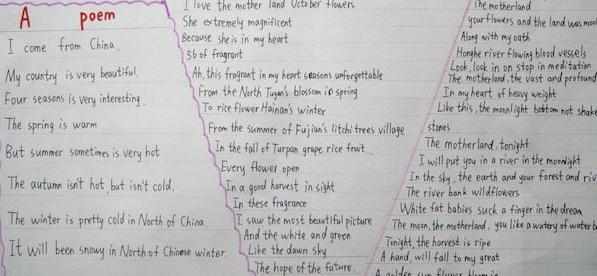 A poem
I come from China.
My country is very beautiful.
Four seasons is very interesting.
The spring is warm
But summer sometimes is very hot
The autumn isn't hot, but isn't cold.
The winter is pretty cold in North of China
It will been snowy in North of Chinese winter
I love the mother land October flowers
She extremely magnificent
Because she is in my heart
56 of fragrant
Ah, this fragrant in my heart seasons unforgettable
From the North Tugan's blossom in spring
To rice flower Hainan's winter
From the summer of Fujian's litchi trees village
In the fall of Turpan grape rice fruit
Every flower open
In a good harvest in sight
In these fragrance
I saw the most beautiful picture
And the white and green
Like the dawn sky
The hope of the future
The motherland
your flowers and the land was
Along with my oath
Honghe river flowing blood vessels
Look, look in on stop in meditation
The motherland, the vast and profound
In my heart of heavy weight
Like this, the moonlight bottom not shake
stones
The motherland, tonight
I will put you in a river in the moonlight
In the sky, the earth and your forest and
The river bank wildflowers
White fat babies suck a finger in the dream
The moon, the motherland, you like a watery of water
Tonight, the harvest is ripe
A hand, will fall to my great
A golden sun flower